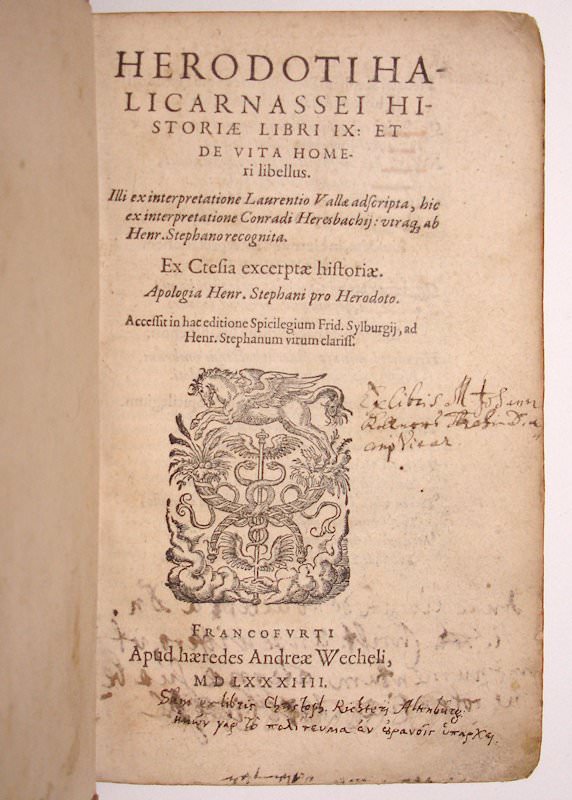 HERODOTI HA-
LICARNASSEI HI-
STORIÆ LIBRI IX: ET
DE VITA HOME-
ri libellus.
Illi ex interpretatione Laurentio Vallæ adſcripta, hic
ex interpretatione Conradi Heresbachij: vtraq; ab
Henr. Stephano recognita.
Ex Cteſia excerptæ hiſtoriæ.
Apologia Henr. Stephani pro Herodoto.
Acceſſit in hac editione Spicilegium Frid. Sylburgij, ad
Henr. Stephanum virum clariſſ.
Ex libris M
FRANCOFVRTI
Apud hæredes Andreæ Wecheli,
MDLXXXIIII.
Sum ex libris Christoph. Richteri Altenburg.
ἡμῶν γὰρ τὸ πολίτευμα ἐν οὐρανοῖς ὑπάρχει